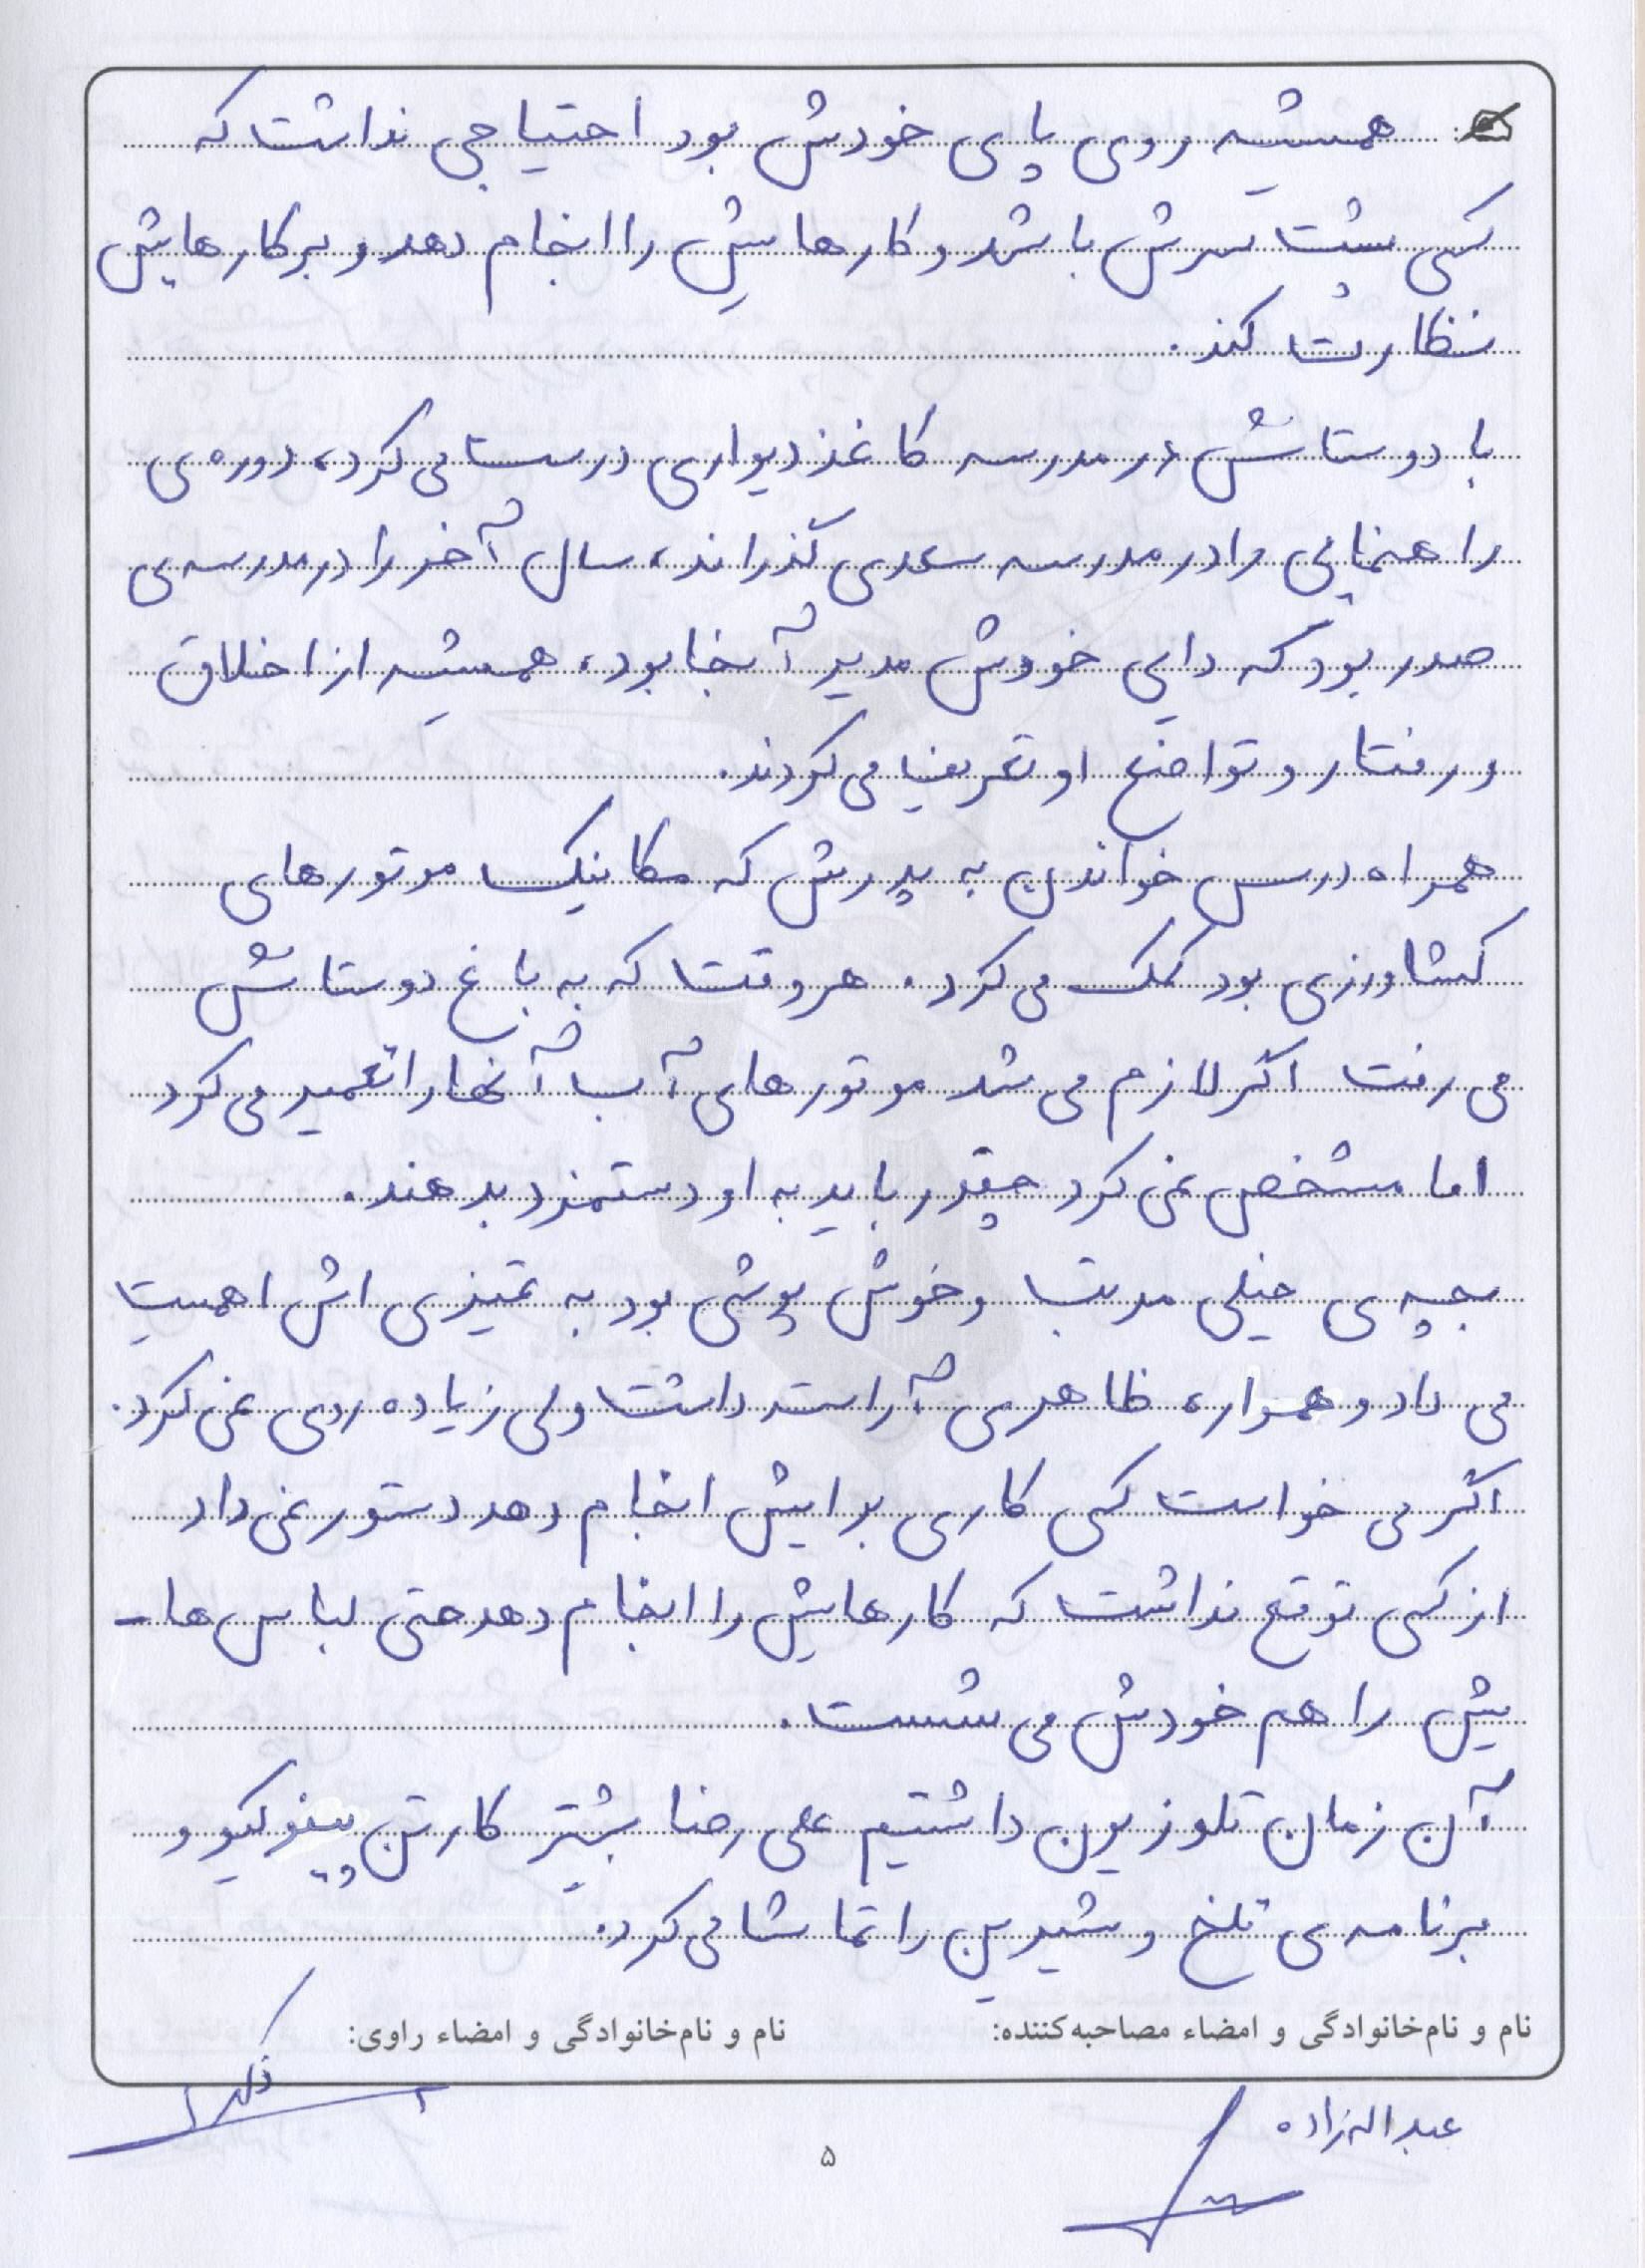 همیشه روی پای خودش بود احتیاجی نداشت که
کسی پشت سرش باشد و کارهایش را انجام دهد و بر کارهایش
نظارت کند.
با دوستانش در مدرسه کاغذ دیواری درست می کرد، دوره ی
راهنمایی را در مدرسه سعدی گذراند، سال آخر را در مدرسه ی
صدر بود که دایی خودش مدیر آنجا بود، همیشه از اخلاق
و رفتار و تواضع او تعریف می کردند.
همراه درس خواندن به پدرش که مکانیک موتورهای
کشاورزی بود کمک می کرد. هر وقت که به باغ دوستانش
می رفت اگر لازم می شد موتورهای آب آنها را تعمیر می کرد
اما مشخص نمی کرد چقدر باید به او دستمزد بدهند.
بچه ی خیلی مرتب و خوش پوشی بود به تمیزی اش اهمیت
می داد و همواره ظاهری آراسته داشت ولی زیاده روی نمی کرد.
اگر می خواست کسی کاری برایش انجام دهد دستور نمی داد
از کسی توقع نداشت که کارهایش را انجام دهد حتی لباس ها-
یش را هم خودش می شست.
آن زمان تلوزیون داشتیم علی رضا بیشتر کارتن پینوکیو و
برنامه ی تلخ و شیرین را تماشا می کرد.
نام و نام‌خانوادگی و امضاء مصاحبه‌کننده: نام و نام‌خانوادگی و امضاء راوی:
عبداله زاده
۵